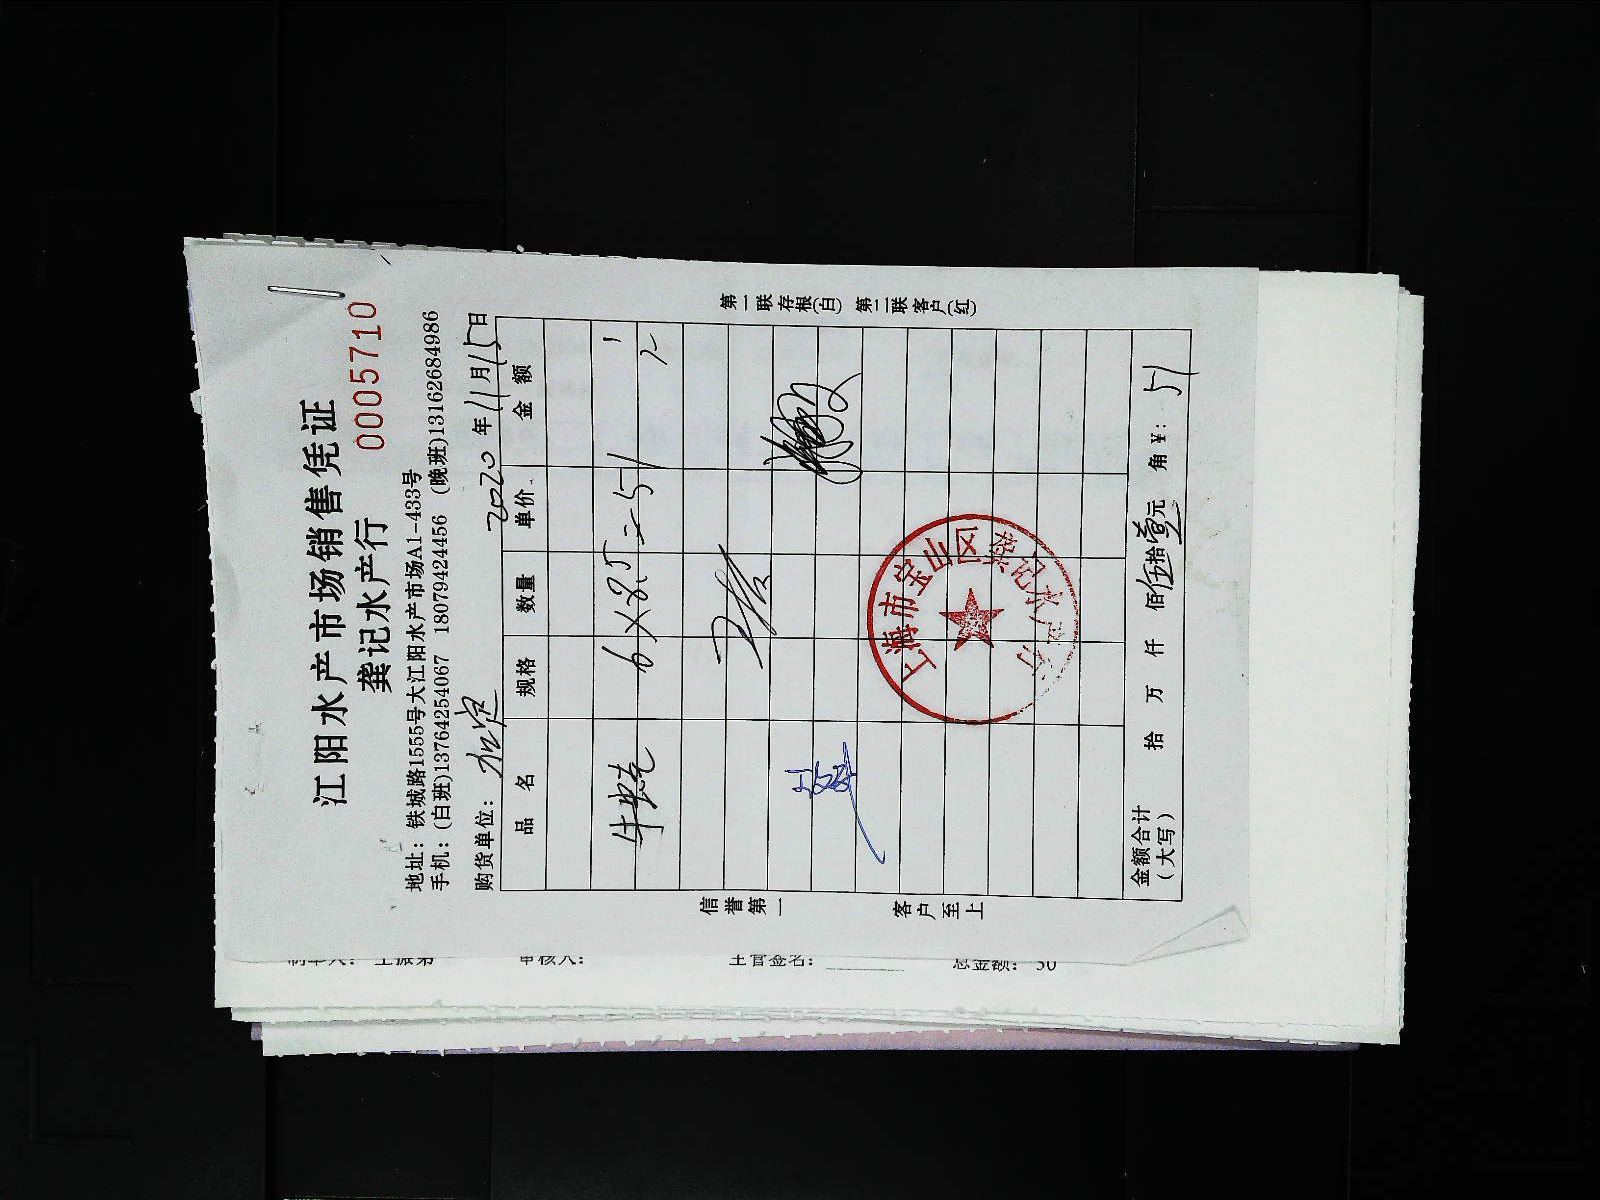 江阳水产市场销售凭证
龚记水产行
0005710
地址：铁城路1555号大江阳水产市场A1-433号
手机：(白班)13764254067 18079424456 (晚班)13162684986
购货单位： 2020年11月15日
品 名 规格 数量 单价 金 额
牛蛙 6×8.5=51
金额合计
(大写) 拾 万 仟 佰伍拾壹元 角 ¥: 51
第一联存根(白) 第二联客户(红)
信誉第一 客户至上
上海市宝山区龚记水产行
制单人： 王振弟 审核人： 主管签名： 总金额： 50